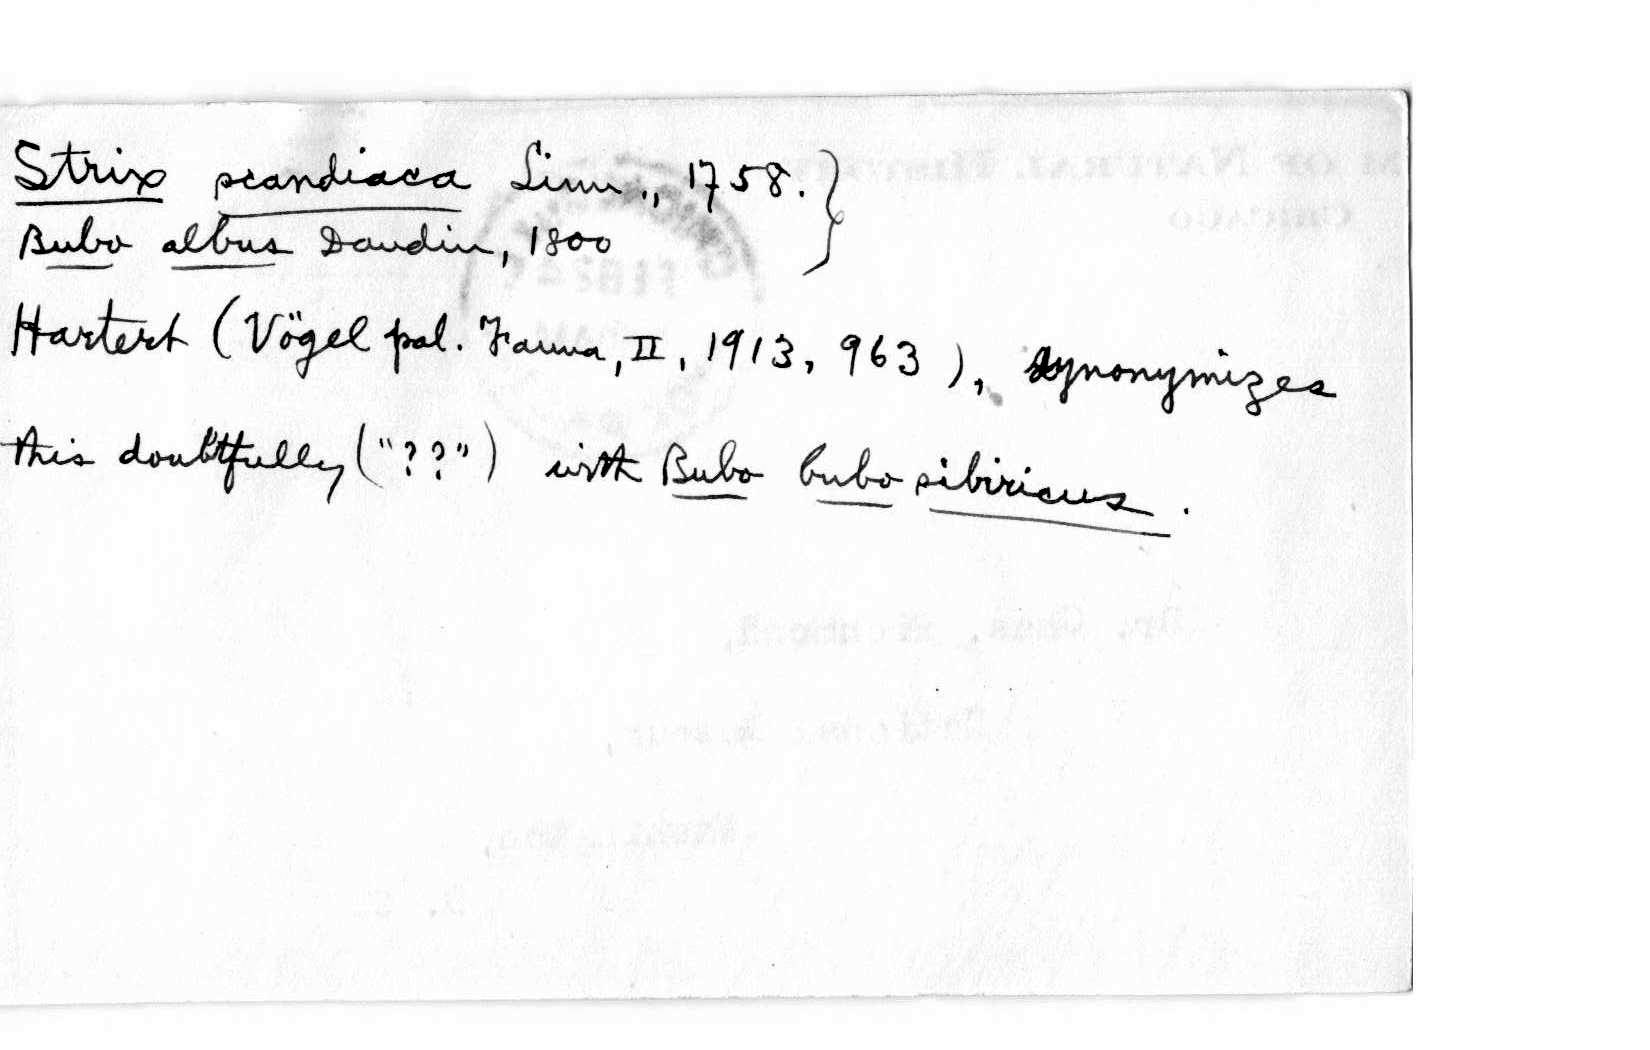 Strix scandiaca Linn., 1758. }
Bubo albus Daudin, 1800
Hartert (Vögel pal. Fauna, II, 1913, 963), synonymizes
this doubtfully ("??") with Bubo bubo sibiricus.